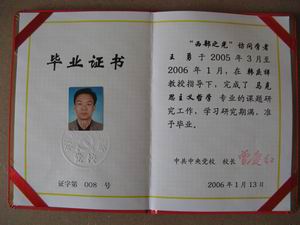 毕业证书
证字第 008 号
“西部之光”访问学者
王 勇 于 2005 年 3 月至
2006 年 1 月，在 韩庆祥
教授指导下，完成了 马克
思主义哲学 专业的课题研
究工作，学习研究期满，准
予毕业。
中共中央党校 校长
2006 年 1 月 13 日